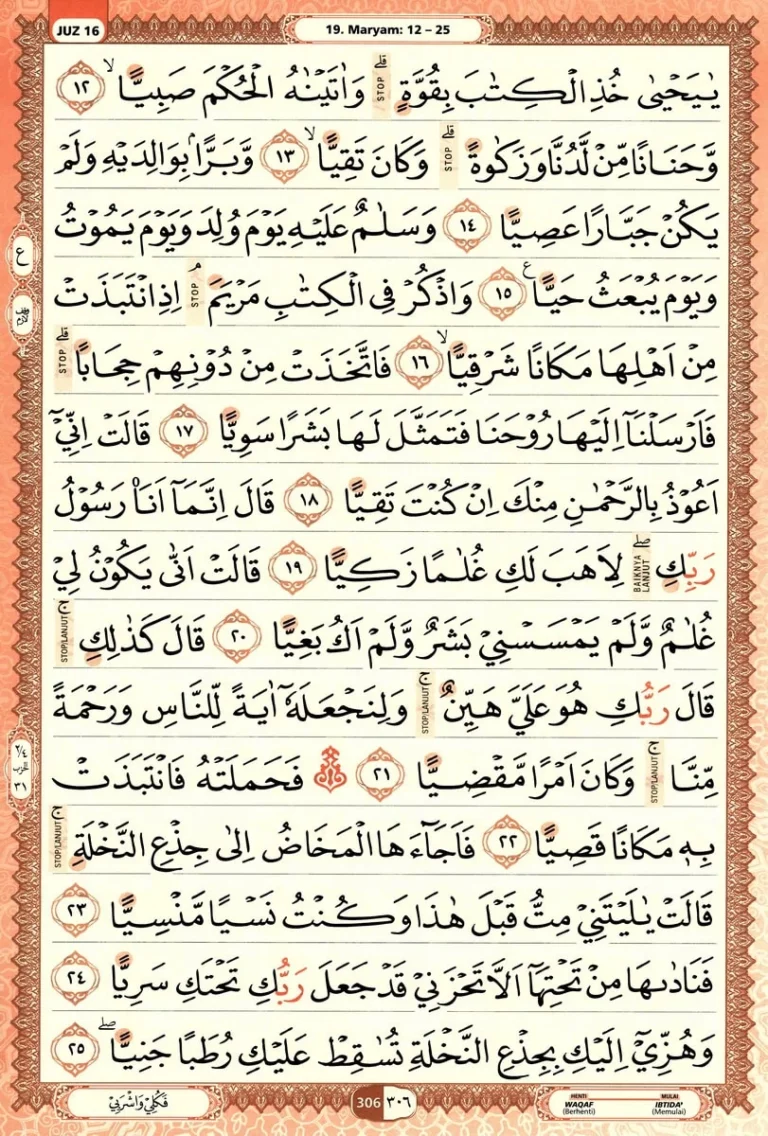 JUZ 16
19. Maryam: 12 – 25
يٰيَحْيٰى خُذِ الْكِتٰبَ بِقُوَّةٍ ۗ STOP وَاٰتَيْنٰهُ الْحُكْمَ صَبِيًّا ۙ ١٢
وَّحَنَانًا مِّنْ لَّدُنَّا وَزَكٰوةً ۗ STOP وَكَانَ تَقِيًّا ۙ ١٣ وَّبَرًّاۢ بِوَالِدَيْهِ وَلَمْ
يَكُنْ جَبَّارًا عَصِيًّا ١٤ وَسَلٰمٌ عَلَيْهِ يَوْمَ وُلِدَ وَيَوْمَ يَمُوْتُ
وَيَوْمَ يُبْعَثُ حَيًّا ࣖ ١٥ وَاذْكُرْ فِى الْكِتٰبِ مَرْيَمَ ۘ STOP اِذِ انْتَبَذَتْ
مِنْ اَهْلِهَا مَكَانًا شَرْقِيًّا ۙ ١٦ فَاتَّخَذَتْ مِنْ دُوْنِهِمْ حِجَابًا ۗ STOP
فَاَرْسَلْنَآ اِلَيْهَا رُوْحَنَا فَتَمَثَّلَ لَهَا بَشَرًا سَوِيًّا ١٧ قَالَتْ اِنِّيْٓ
اَعُوْذُ بِالرَّحْمٰنِ مِنْكَ اِنْ كُنْتَ تَقِيًّا ١٨ قَالَ اِنَّمَآ اَنَا۠ رَسُوْلُ
رَبِّكِ ۖ BAIKNYA LANJUT لِاَهَبَ لَكِ غُلٰمًا زَكِيًّا ١٩ قَالَتْ اَنّٰى يَكُوْنُ لِيْ
غُلٰمٌ وَّلَمْ يَمْسَسْنِيْ بَشَرٌ وَّلَمْ اَكُ بَغِيًّا ٢٠ قَالَ كَذٰلِكِ ۚ STOP/LANJUT
قَالَ رَبُّكِ هُوَ عَلَيَّ هَيِّنٌ ۚ STOP/LANJUT وَلِنَجْعَلَهٗٓ اٰيَةً لِّلنَّاسِ وَرَحْمَةً
مِّنَّا ۚ STOP/LANJUT وَكَانَ اَمْرًا مَّقْضِيًّا ٢١ ۞ فَحَمَلَتْهُ فَانْتَبَذَتْ
بِهٖ مَكَانًا قَصِيًّا ٢٢ فَاَجَاۤءَهَا الْمَخَاضُ اِلٰى جِذْعِ النَّخْلَةِ ۚ STOP/LANJUT
قَالَتْ يٰلَيْتَنِيْ مِتُّ قَبْلَ هٰذَا وَكُنْتُ نَسْيًا مَّنْسِيًّا ٢٣
فَنَادٰىهَا مِنْ تَحْتِهَآ اَلَّا تَحْزَنِيْ قَدْ جَعَلَ رَبُّكِ تَحْتَكِ سَرِيًّا ٢٤
وَهُزِّيْٓ اِلَيْكِ بِجِذْعِ النَّخْلَةِ تُسٰقِطْ عَلَيْكِ رُطَبًا جَنِيًّا ۖ ٢٥
ع
٢/٤
الحزب
٣١
فَكُلِيْ وَاشْرَبِيْ
306 ٣٠٦
HENTI WAQAF (Berhenti)
MULAI IBTIDA' (Memulai)